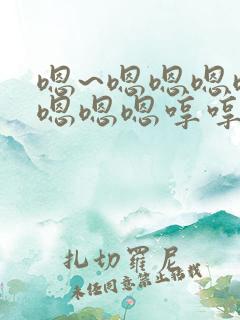 嗯~嗯嗯嗯
嗯嗯嗯哼哼
扎切罗尼
未经同意禁止转载